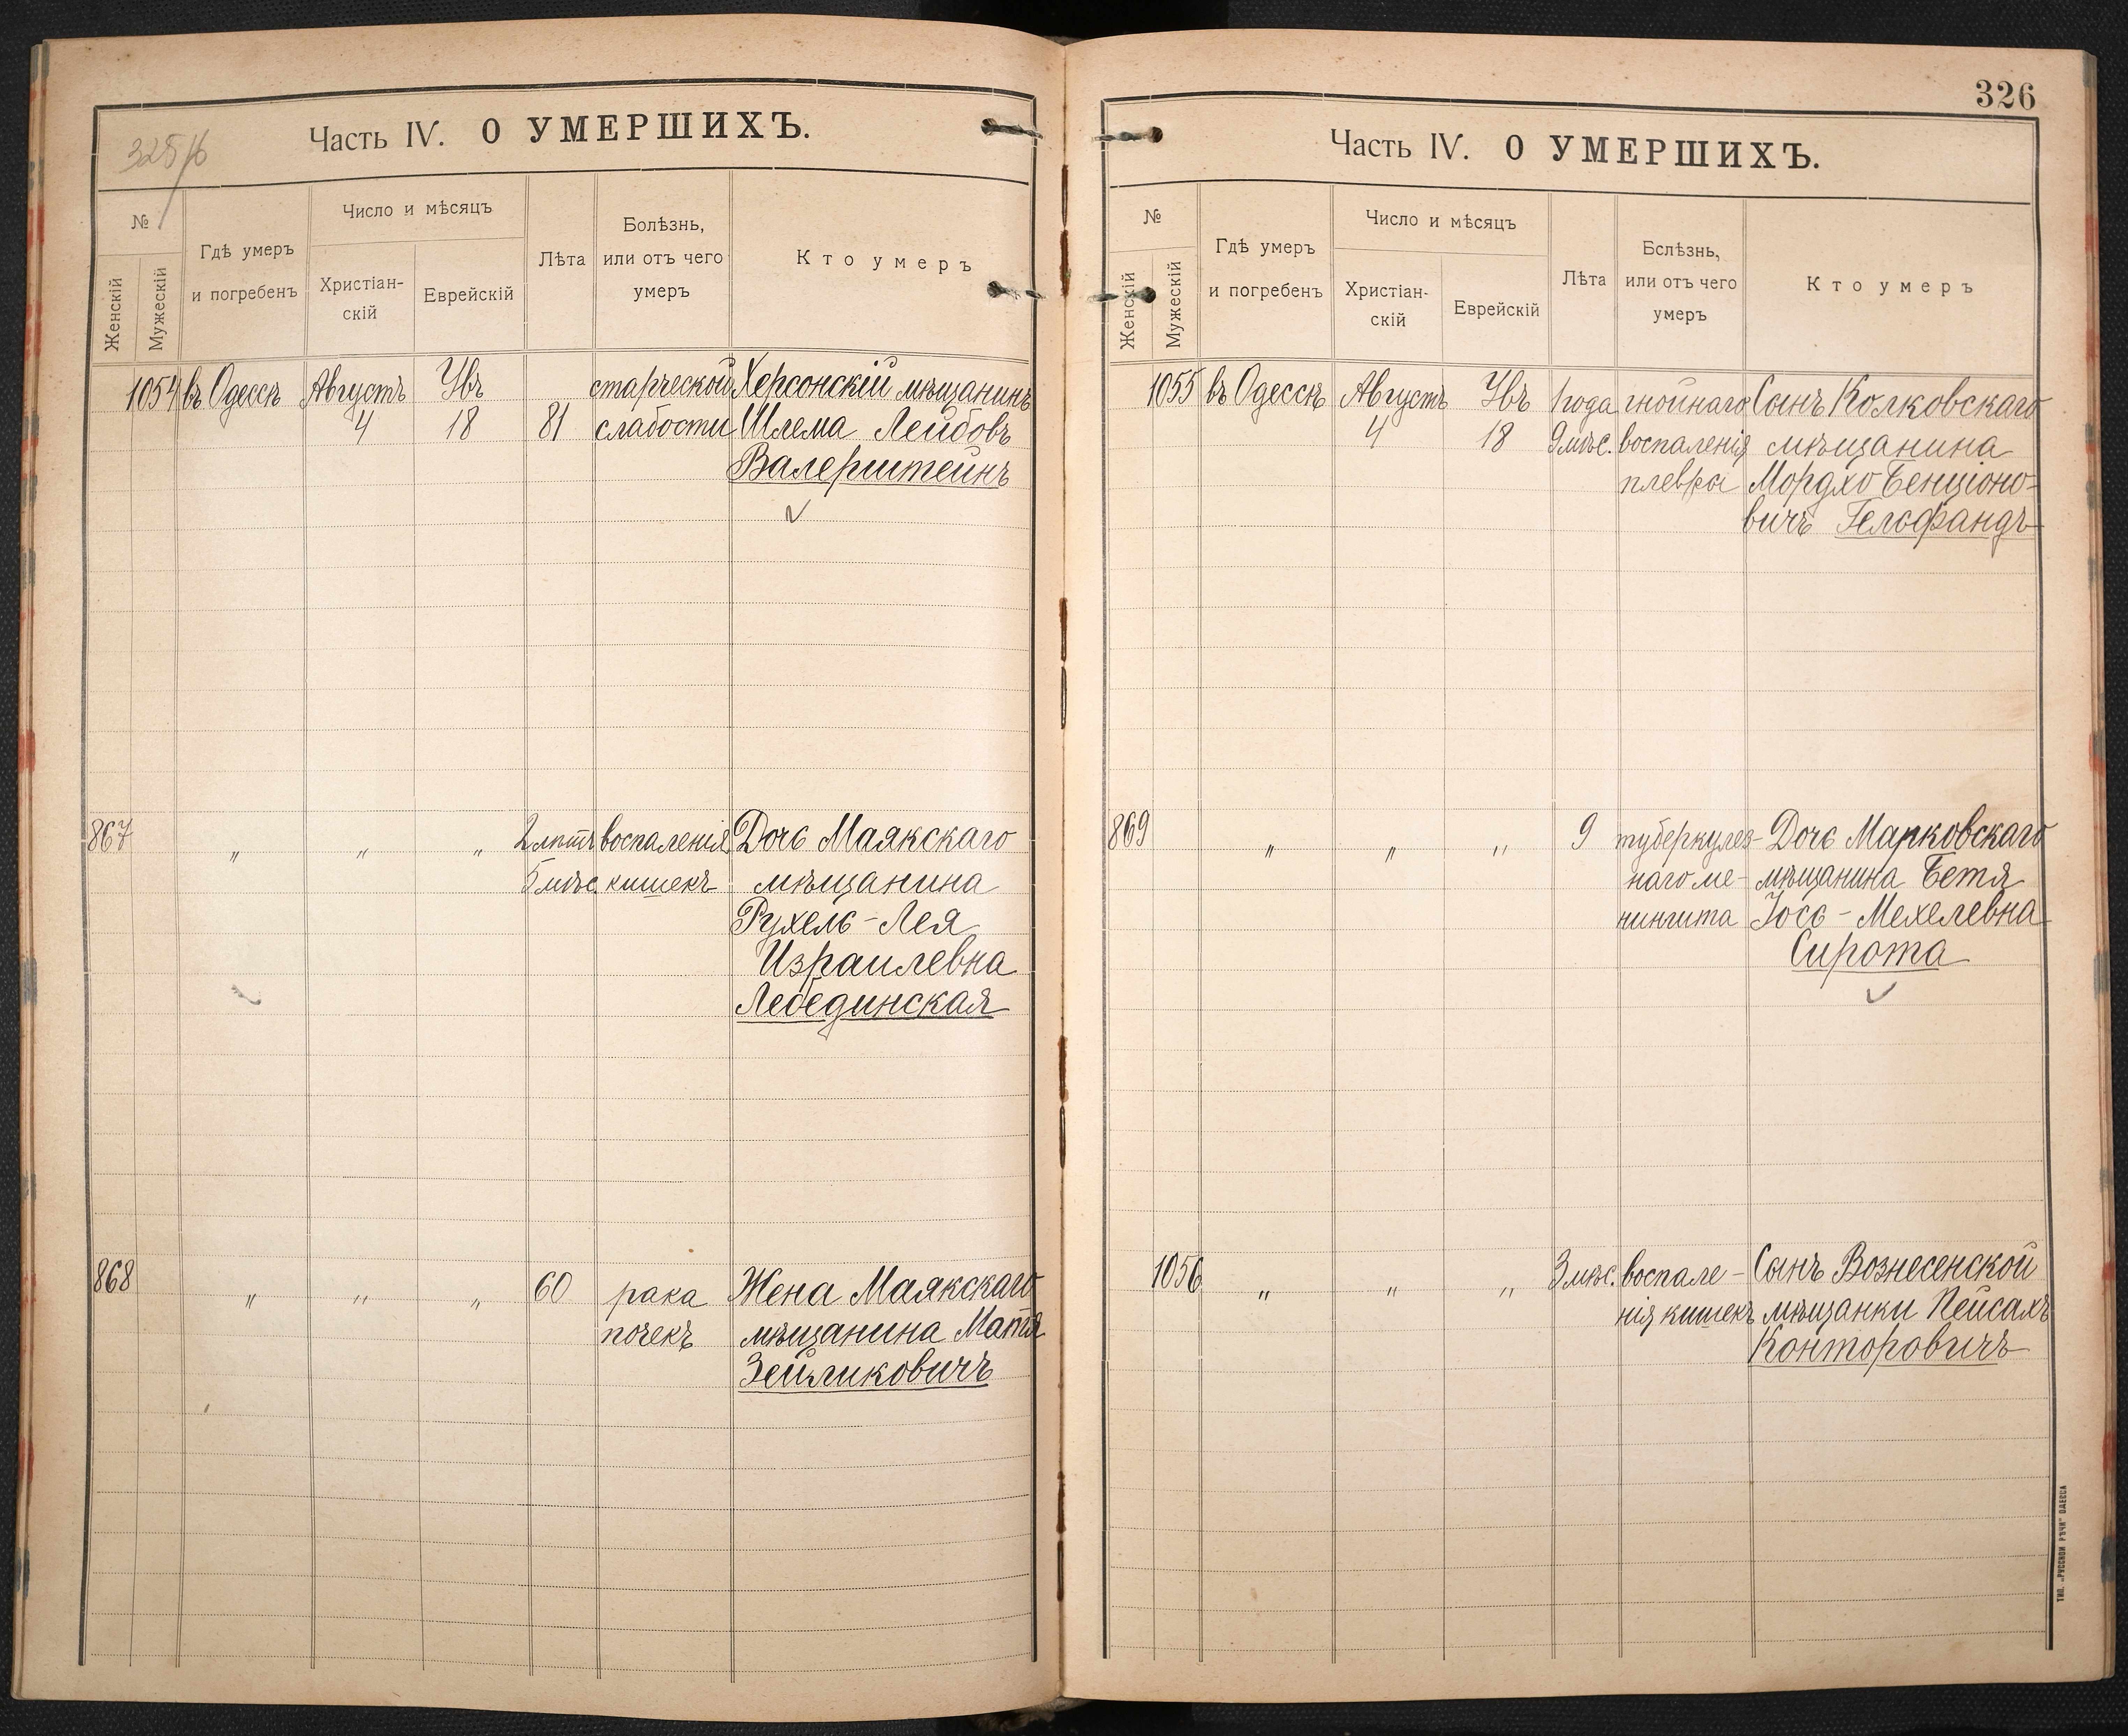 325/б
Часть IV. О УМЕРШИХЪ.
№
Женскій
Мужескій
Гдѣ умеръ
и погребенъ
Число и мѣсяцъ
Христіан-
скій
Еврейскій
Лѣта
Болѣзнь,
или отъ чего
умеръ
Кто умеръ
1054 въ Одессѣ Августъ Увъ старческой Херсонскій мѣщанинъ
4 18 81 слабости Шлема Лейбовъ
Валерштейнъ
867 " " " 2 лѣтъ воспаленія Дочь Маякскаго
5 мѣс кишекъ мѣщанина
Рухель-Лея
Израилевна
Лебединская
868 " " " 60 рака Жена Маякскаго
почекъ мѣщанина Матя
Зейликовичъ
326
Часть IV. О УМЕРШИХЪ.
№
Женскій
Мужескій
Гдѣ умеръ
и погребенъ
Число и мѣсяцъ
Христіан-
скій
Еврейскій
Лѣта
Бслѣзнь,
или отъ чего
умеръ
Кто умеръ
1055 въ Одессѣ Августъ Увъ 1 года гнойнаго Сынъ Колковскаго
4 18 9 мѣс. воспаленія мѣщанина
плевры Мордхо Бенціоно-
вичъ Гельфандъ
869 " " " 9 туберкулез- Дочь Марковскаго
наго ме- мѣщанина Бетя
нингита Іось-Мехелевна
Сирота
1056 " " " 3 мѣс. воспале- Сынъ Вознесенской
нія кишекъ мѣщанки Пейсахъ
Конторовичъ
ТИП. „РУССКОЙ РѢЧИ" ОДЕССА